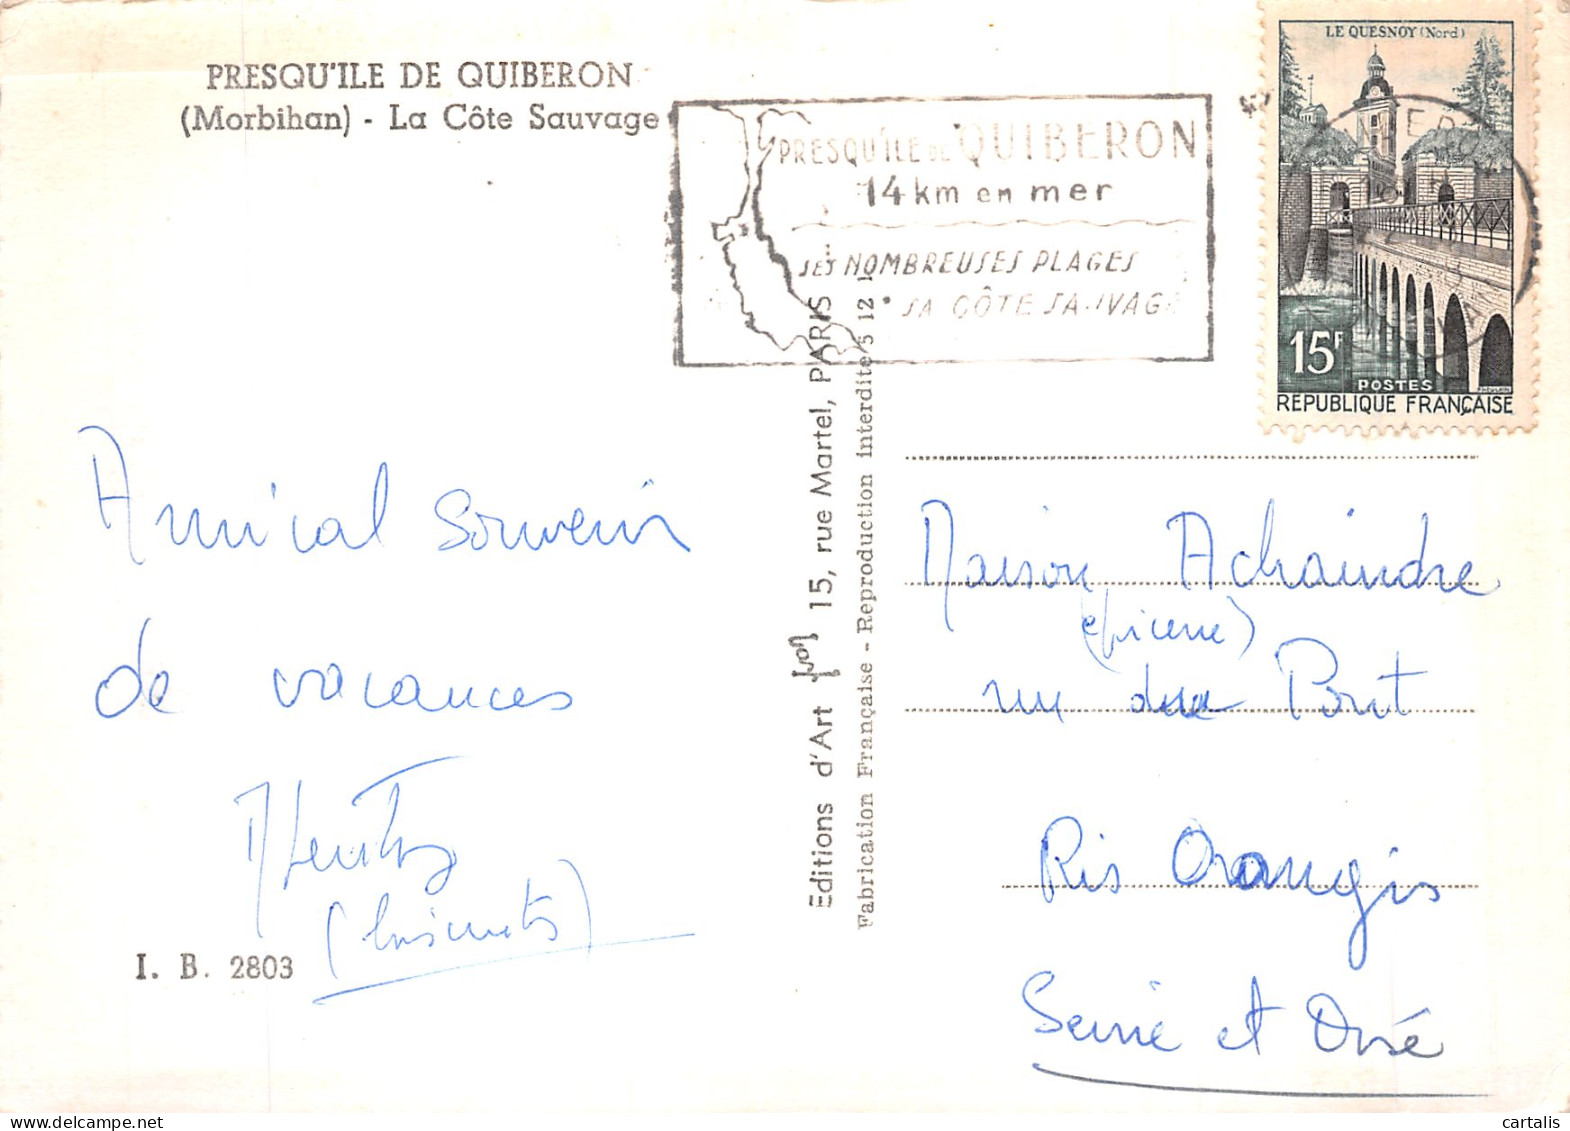 PRESQU'ILE DE QUIBERON
(Morbihan) - La Côte Sauvage
PRESQU'ILE DE QUIBERON
14 km en mer
SES NOMBREUSES PLAGES
SA CÔTE SAUVAGE
LE QUESNOY (Nord)
15F
POSTES
REPUBLIQUE FRANÇAISE
Amical souvenir
de vacances
I. B. 2803
Editions d'Art 15, rue Martel, PARIS
Fabrication Française - Reproduction interdite 5 12 1
Maison Achaindre
(épicerie)
rue du Pont
Ris Orangis
Seine et Oise
cartalis